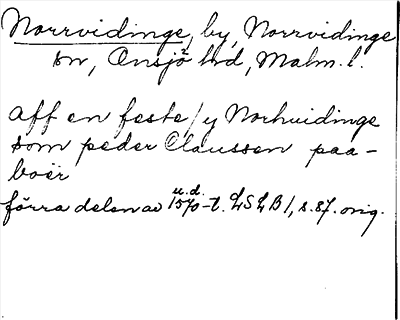 Norrvidinge, by, Norrvidinge
sn, Onsjö hd, Malm. l.
aff en feste / y Norhuidinge
som peder Claussen paa-
boer
förra delen av u.d. 1570-t. LSLB 1, s. 87. orig.